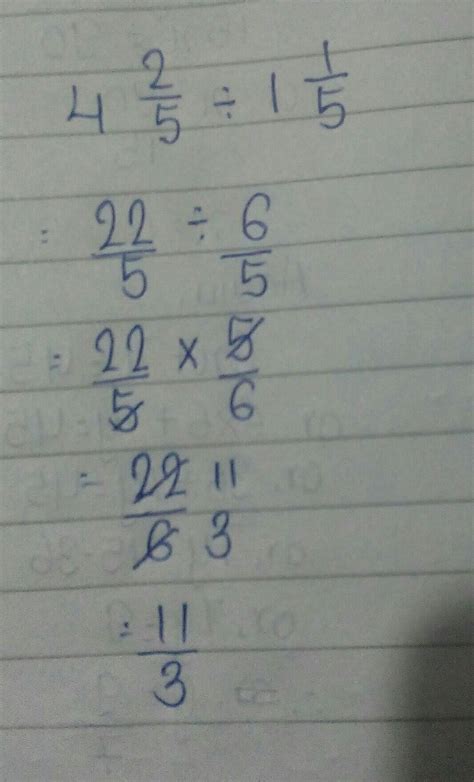 4 2/5 ÷ 1 1/5
= 22/5 ÷ 6/5
= 22/5 × 5/6
= 22/6 11/3
= 11/3